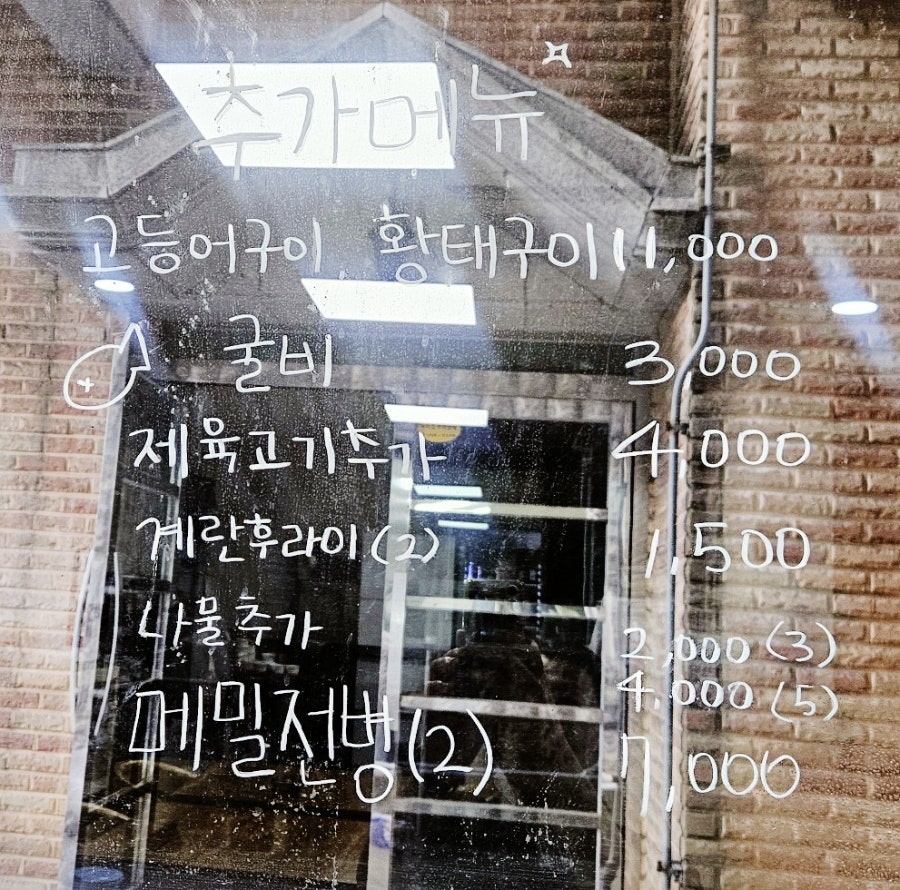 추가메뉴
고등어구이, 황태구이 11,000
굴비 3,000
제육고기추가 4,000
계란후라이(2) 1,500
나물추가 2,000(3)
4,000(5)
메밀전병(2) 7,000